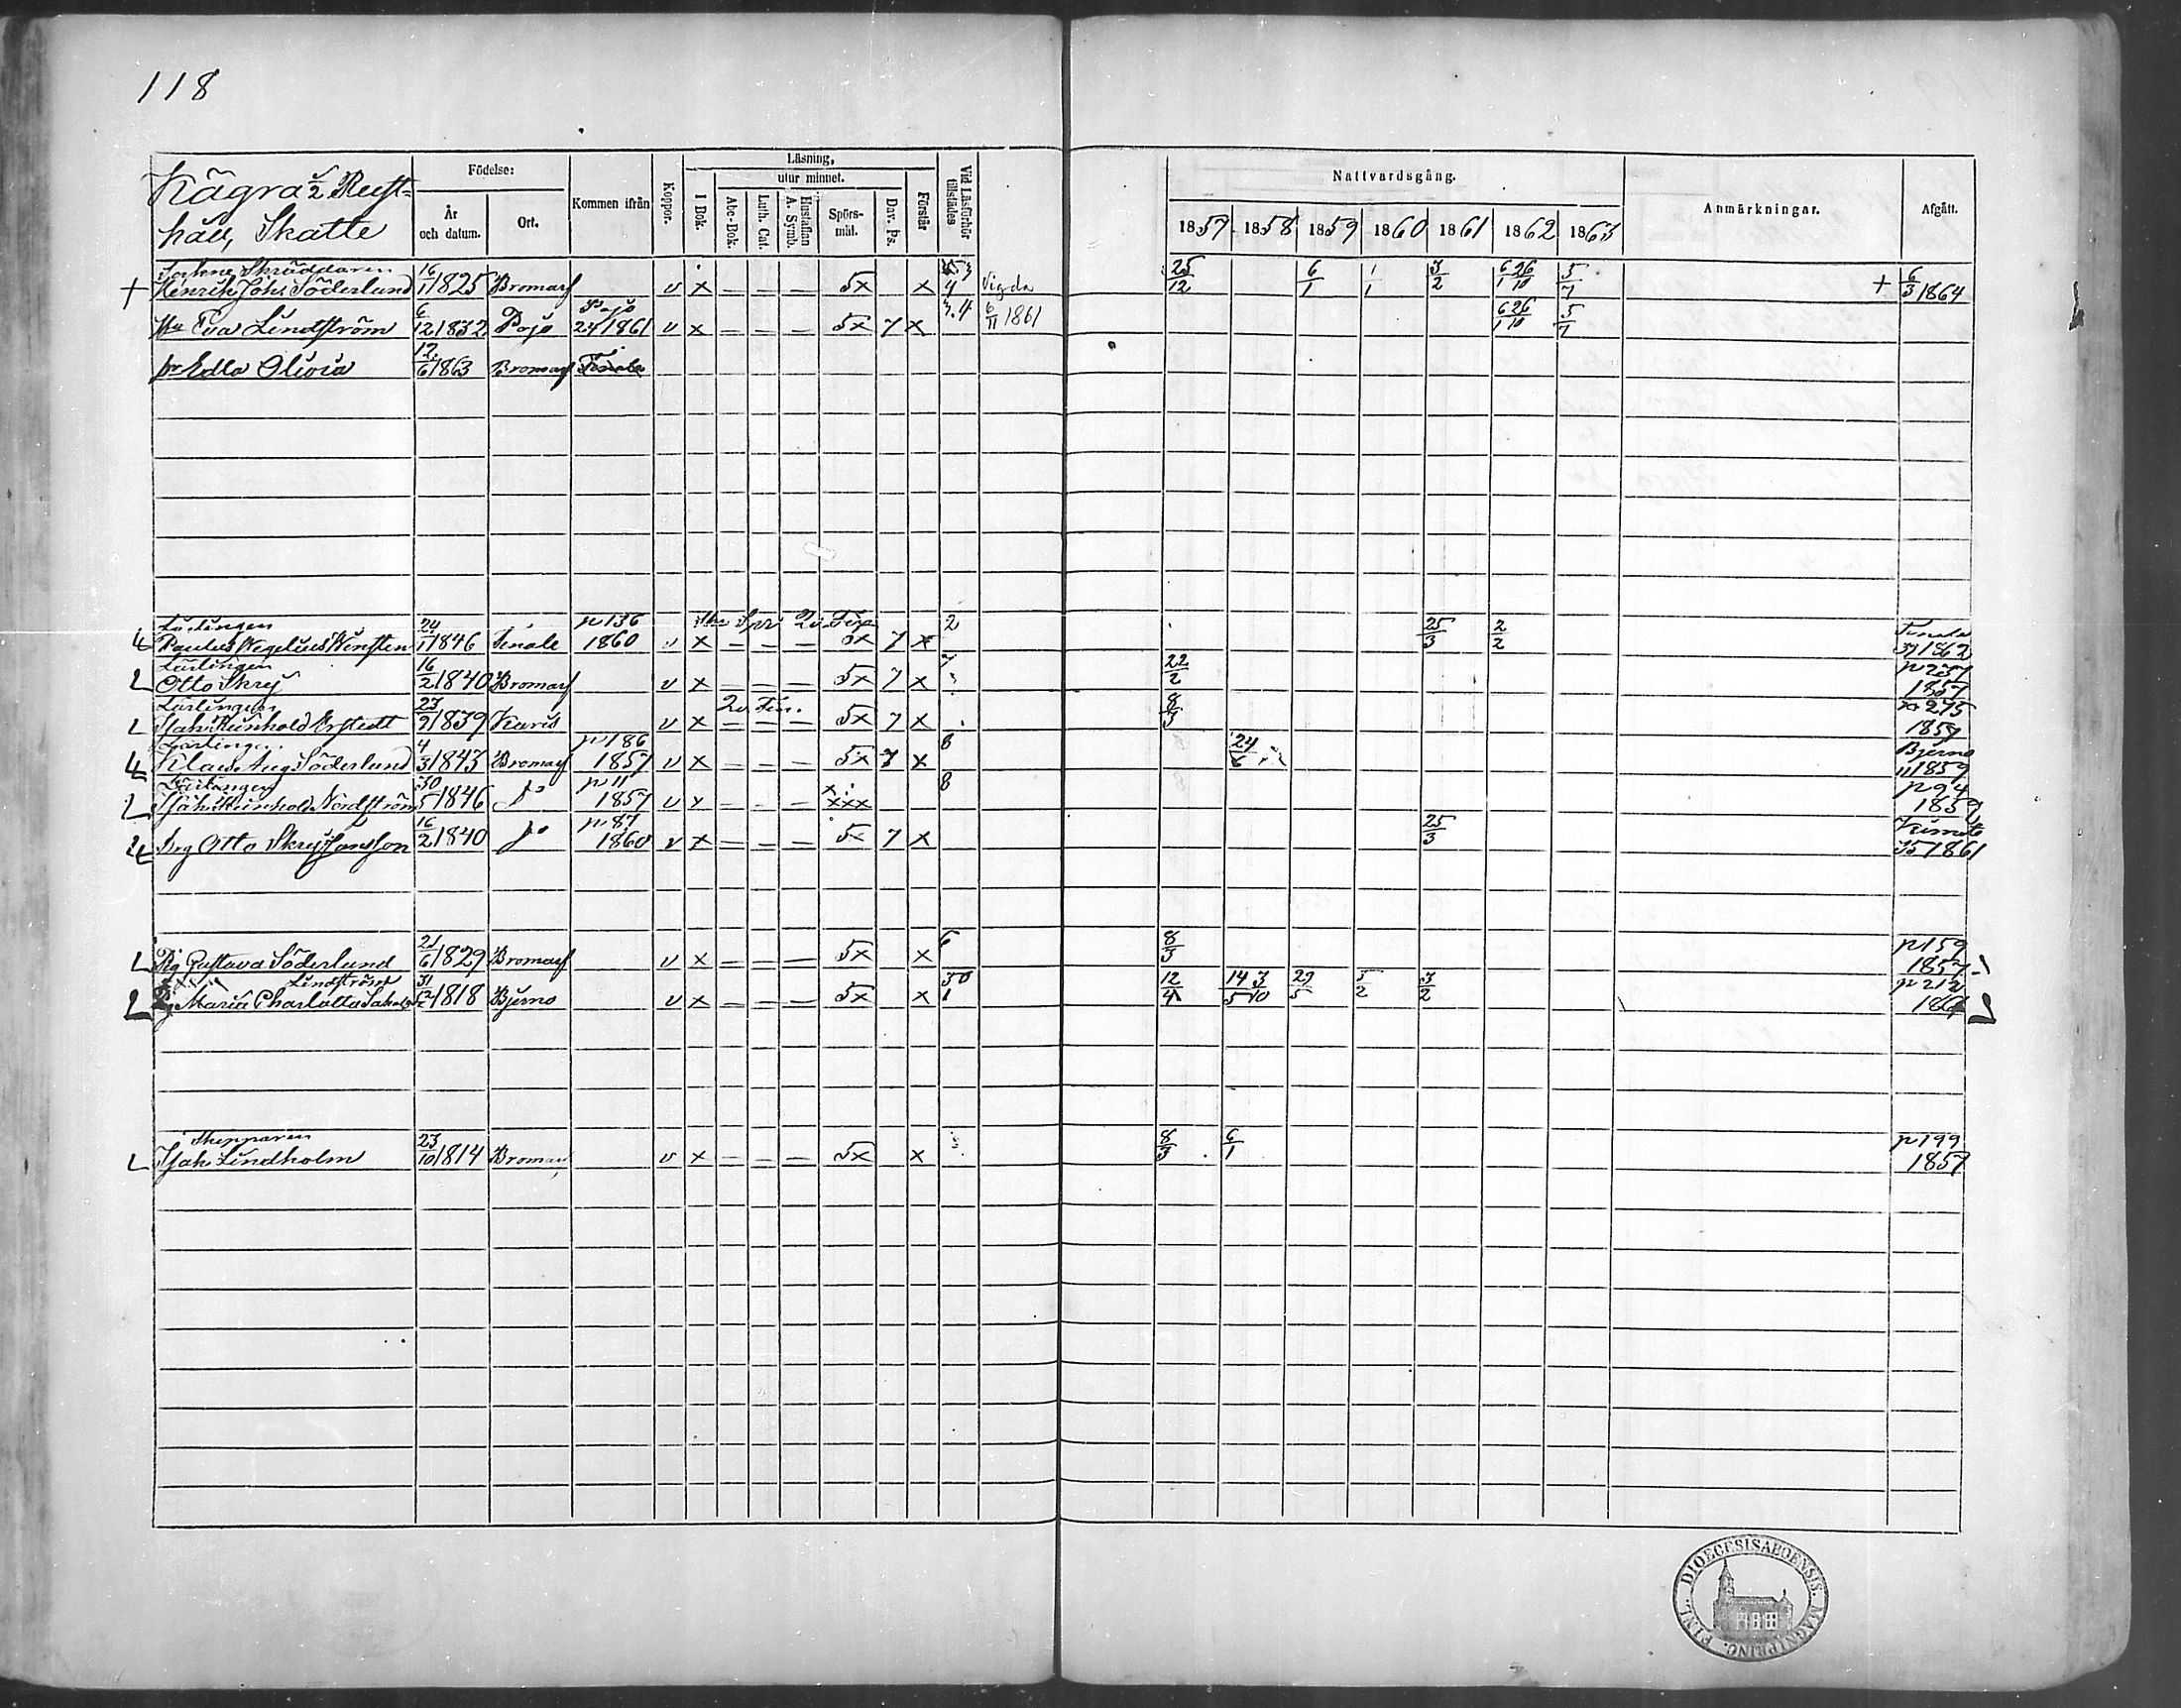 118
Kägra 1/2 Rust-
håll, Skatte
Födelse:
År och datum.
Ort.
Kommen ifrån
Koppor.
Läsning,
I Bok.
utur minnet.
Abc-Bok.
Luth. Cat.
Hustaflan A. Symb.
Spörs-mål.
Dav. Ps.
Förstår
Vid Läsförhör tillstädes
Nattvardsgång.
1857 1858 1859 1860 1861 1862 1863
Anmärkningar.
Afgått.
Skräddaren
+ Henrik Joh: Söderlund 16/11 1825 Bromarf v x – – – 5x x Vigda 25/12 6/1 1/1 3/2 6/1 26/10 5/7 + 6/3 1864
Hu Eva Lindström 6/12 1832 Pojo Pojo 24 1861 v x – – – 5x 7 x 3.4 6/11 1861 6/1 26/10 5/7
Edla Olivia 12/6 1863 Bromarf
Lärlingen p 136 2
24/1 1846 Finale 1860 v x – – – 5x 7 x 25/3 2/2 1862
Lärlingen
L Otto Skrej 16/2 1840 Bromarf v x – – – 5x 7 x 7 22/2 p 257 1857
Lärlingen
L Isak Reinhold 23/9 1839 Karis v x – – – 5x 7 x 8/3 p 275 1857
Lärlingen p 186
Klas Aug: Söderlund 4/3 1843 Bromarf 1857 v x – – – 5x 7 x 8 24/6 Bjerno 1859
Lärlingen p 11
L Isak Reinhold Nordström 30/5 1846 do 1857 v x – – – xxx 8 p 94 1859
p 87
Drg Otto Skrej Jansson 16/2 1840 do 1860 v x – – – 5x 7 x 25/3 Kimito 1861
L Pig Gustava Söderlund 21/6 1829 Bromarf v x – – – 5x x 6 8/3 p 159 1857
L Maria Charlotta 31/12 1818 Bjerno v x – – – 5x x 12/4 14/5 3/10 29/5 5/2 3/2 p 212
Skepparen
L Isak Lindholm 23/10 1814 Bromarf v x – – – 5x x 8/3 6/1 p 199 1857
DIOECESIS ABOENSIS. MAGN. PRINC. FINL.